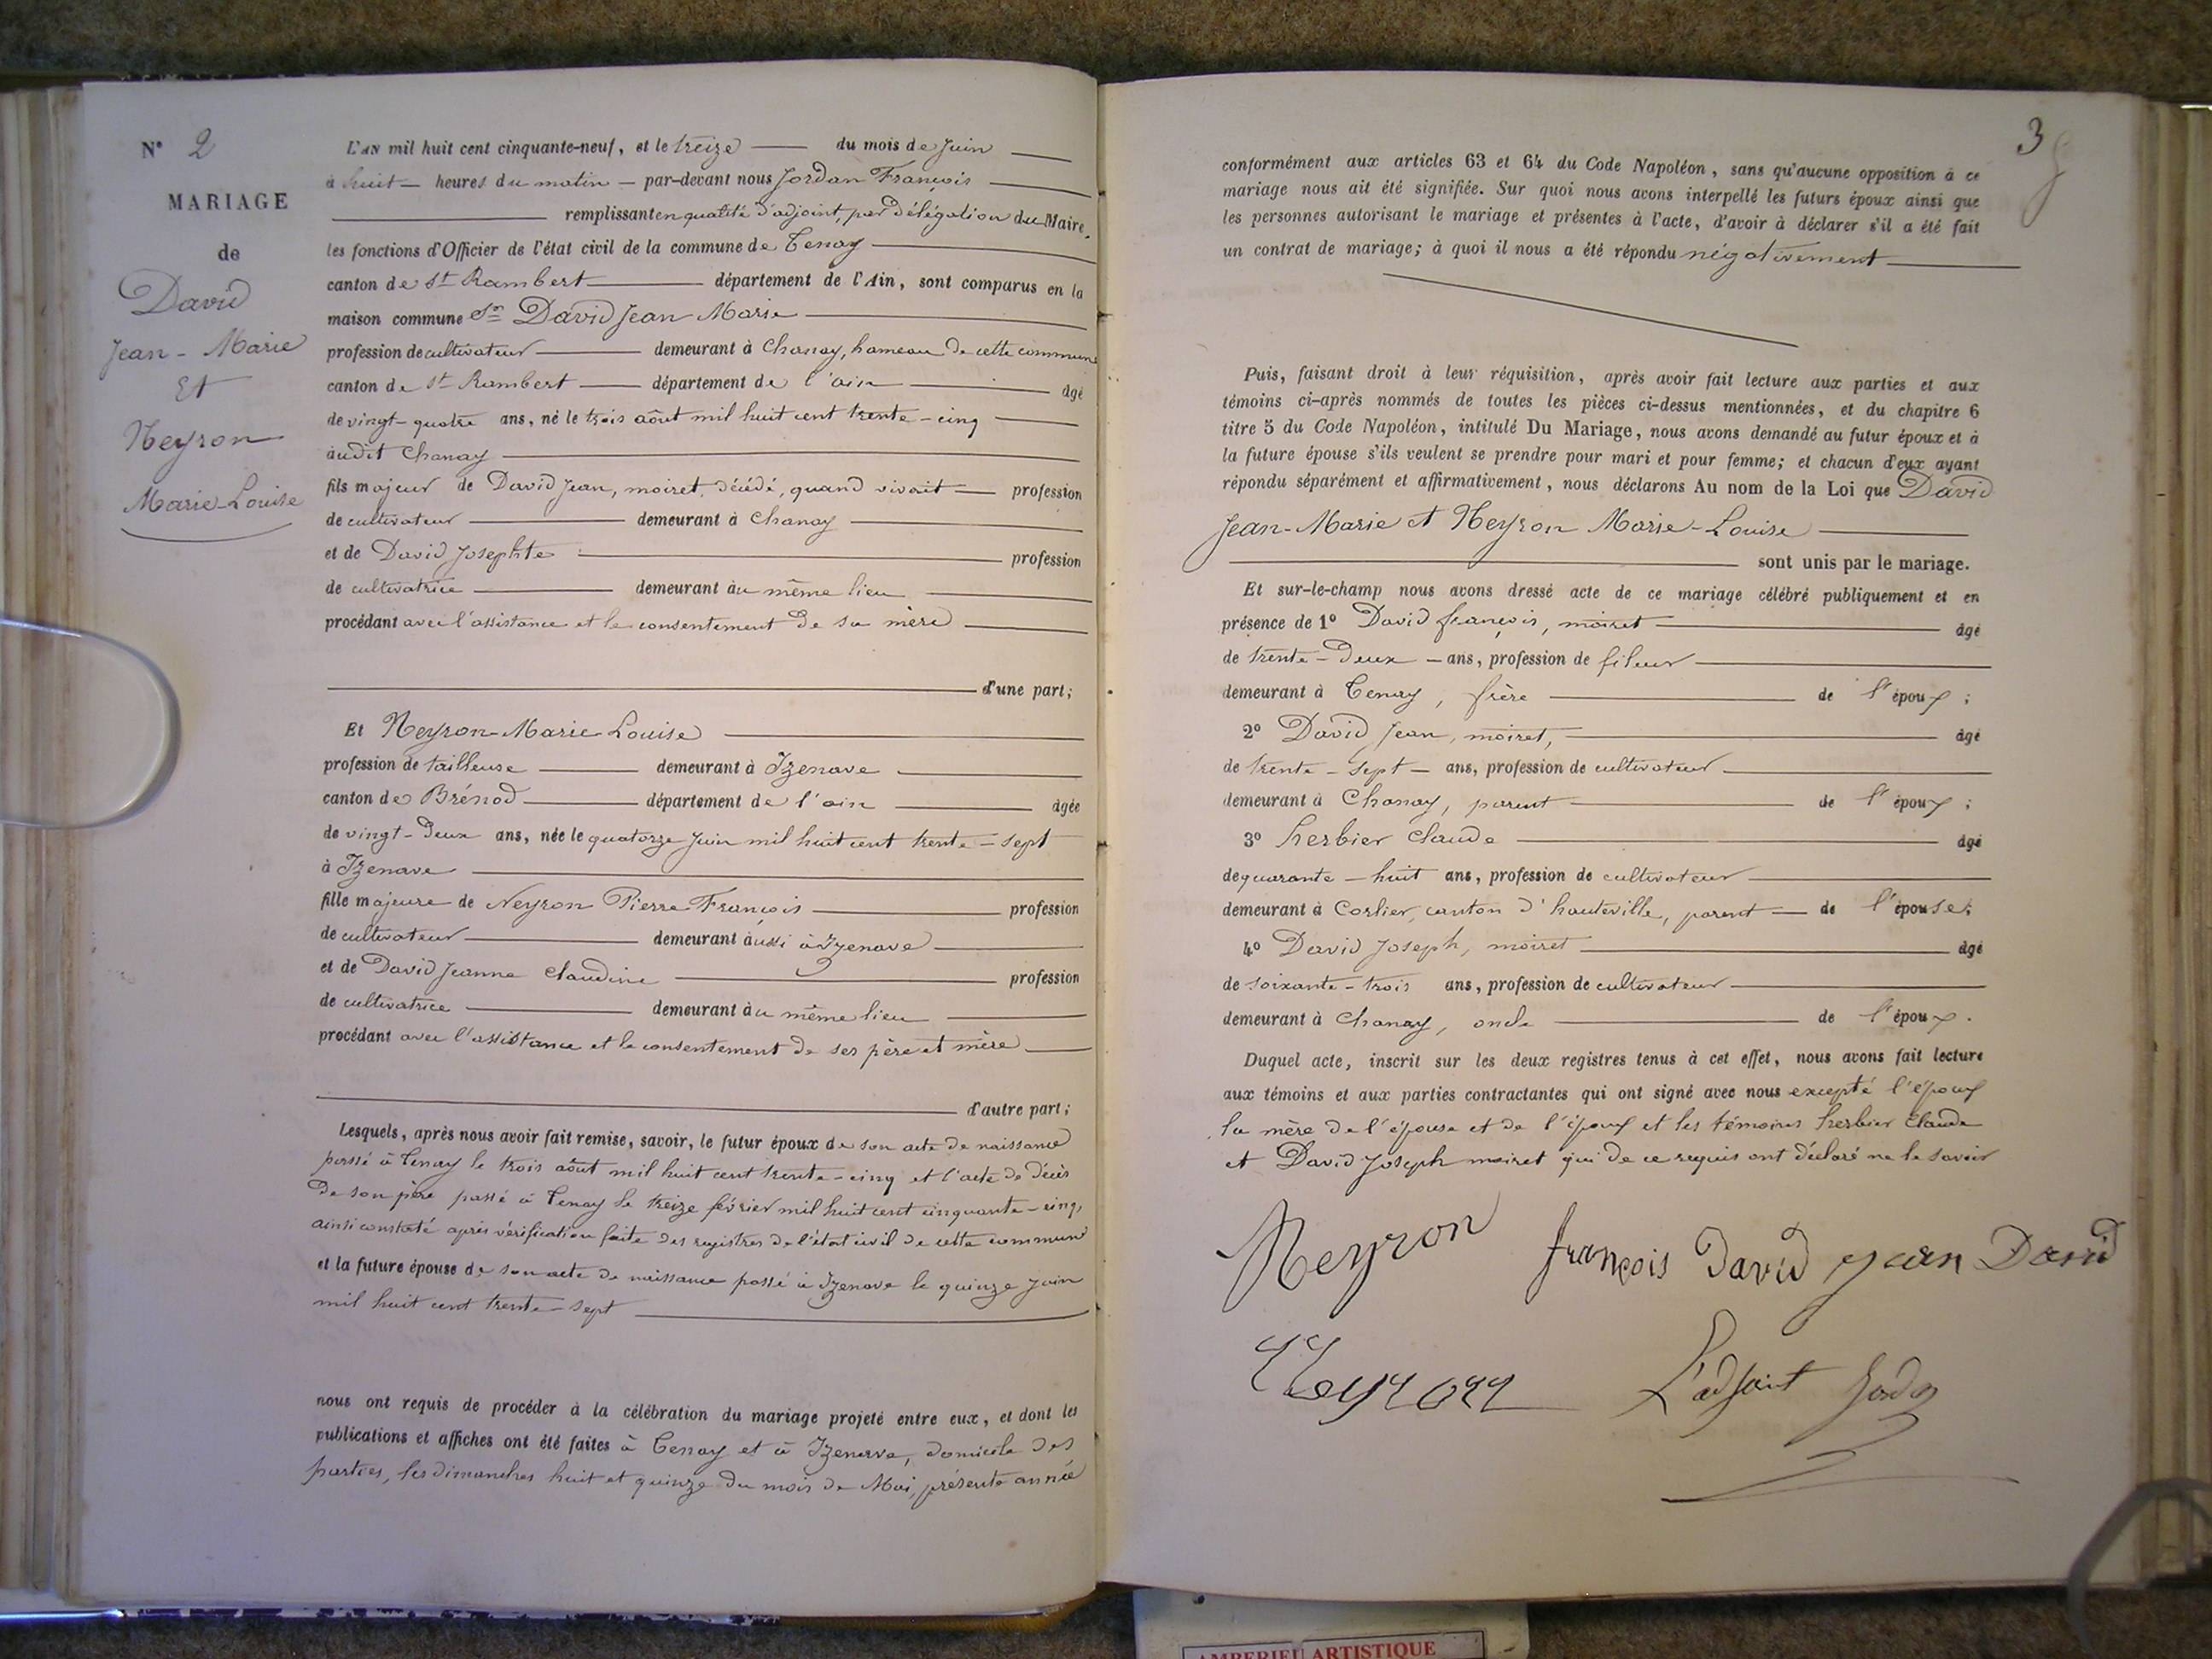 N° 2
MARIAGE
de
David
Jean-Marie
Et
Neyron
Marie-Louise
L'AN mil huit cent cinquante-neuf, et le treize du mois de Juin
à huit heures du matin par-devant nous Jordan François
remplissant en qualité d'adjoint, par délégation du Maire,
les fonctions d'Officier de l'état civil de la commune de Tenay
canton de St Rambert département de l'Ain, sont comparus en la
maison commune Sr David Jean Marie
profession de cultivateur demeurant à Chanay, hameau de cette commune
canton de St Rambert département de l'ain âgé
de vingt-quatre ans, né le trois août mil huit cent trente-cinq
audit Chanay
fils majeur de David Jean, moiret, décédé, quand vivait profession
de cultivateur demeurant à Chanay
et de David Josephte profession
de cultivatrice demeurant au même lieu
procédant avec l'assistance et le consentement de sa mère
d'une part;
Et Neyron Marie Louise
profession de tailleuse demeurant à Izenave
canton de Brénod département de l'ain âgée
de vingt-deux ans, née le quatorze juin mil huit cent trente-sept
à Izenave
fille majeure de Neyron Pierre François profession
de cultivateur demeurant aussi à Izenave
et de David Jeanne Claudine profession
de cultivatrice demeurant au même lieu
procédant avec l'assistance et le consentement de ses père et mère
d'autre part;
Lesquels, après nous avoir fait remise, savoir, le futur époux de son acte de naissance
passé à Tenay le trois août mil huit cent trente-cinq et l'acte de décès
de son père passé à Tenay le treize février mil huit cent cinquante-cinq,
ainsi constaté après vérification faite des registres de l'état civil de cette commune
et la future épouse de son acte de naissance passé à Izenave le quinze juin
mil huit cent trente-sept
nous ont requis de procéder à la célébration du mariage projeté entre eux, et dont les
publications et affiches ont été faites à Tenay et à Izenave, domicile des
parties, les dimanches huit et quinze du mois de Mai, présente année
3
conformément aux articles 63 et 64 du Code Napoléon, sans qu'aucune opposition à ce
mariage nous ait été signifiée. Sur quoi nous avons interpellé les futurs époux ainsi que
les personnes autorisant le mariage et présentes à l'acte, d'avoir à déclarer s'il a été fait
un contrat de mariage; à quoi il nous a été répondu négativement
Puis, faisant droit à leur réquisition, après avoir fait lecture aux parties et aux
témoins ci-après nommés de toutes les pièces ci-dessus mentionnées, et du chapitre 6
titre 5 du Code Napoléon, intitulé Du Mariage, nous avons demandé au futur époux et à
la future épouse s'ils veulent se prendre pour mari et pour femme; et chacun d'eux ayant
répondu séparément et affirmativement, nous déclarons Au nom de la Loi que David
Jean-Marie et Neyron Marie-Louise
sont unis par le mariage.
Et sur-le-champ nous avons dressé acte de ce mariage célébré publiquement et en
présence de 1° David françois, moiret âgé
de trente-deux ans, profession de fileur
demeurant à Tenay, frère de l'époux;
2° David Jean, moiret, âgé
de trente-sept ans, profession de cultivateur
demeurant à Chanay, parent de l'époux;
3° herbier Claude âgé
de quarante-huit ans, profession de cultivateur
demeurant à Corlier, canton d'hauteville, parent de l'épouse;
4° David Joseph, moiret âgé
de soixante-trois ans, profession de cultivateur
demeurant à Chanay, oncle de l'époux.
Duquel acte, inscrit sur les deux registres tenus à cet effet, nous avons fait lecture
aux témoins et aux parties contractantes qui ont signé avec nous excepté l'époux
la mère de l'épouse et de l'époux et les témoins herbier Claude
et David Joseph moiret qui de ce requis ont déclaré ne le savoir
Neyron françois David jean David
Neyron L'adjoint Jordan
AMBERIEU ARTISTIQUE